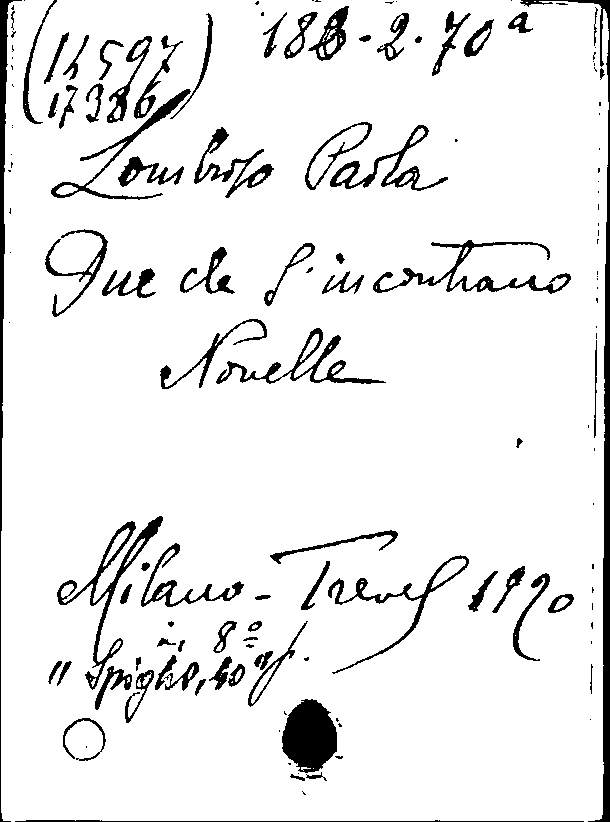 (14597) 188-2-70 a
17386
Lombroso Paola
Due che s'incontrano
Novelle
Milano - Treves 1920
in 8º
" Spighe, 40